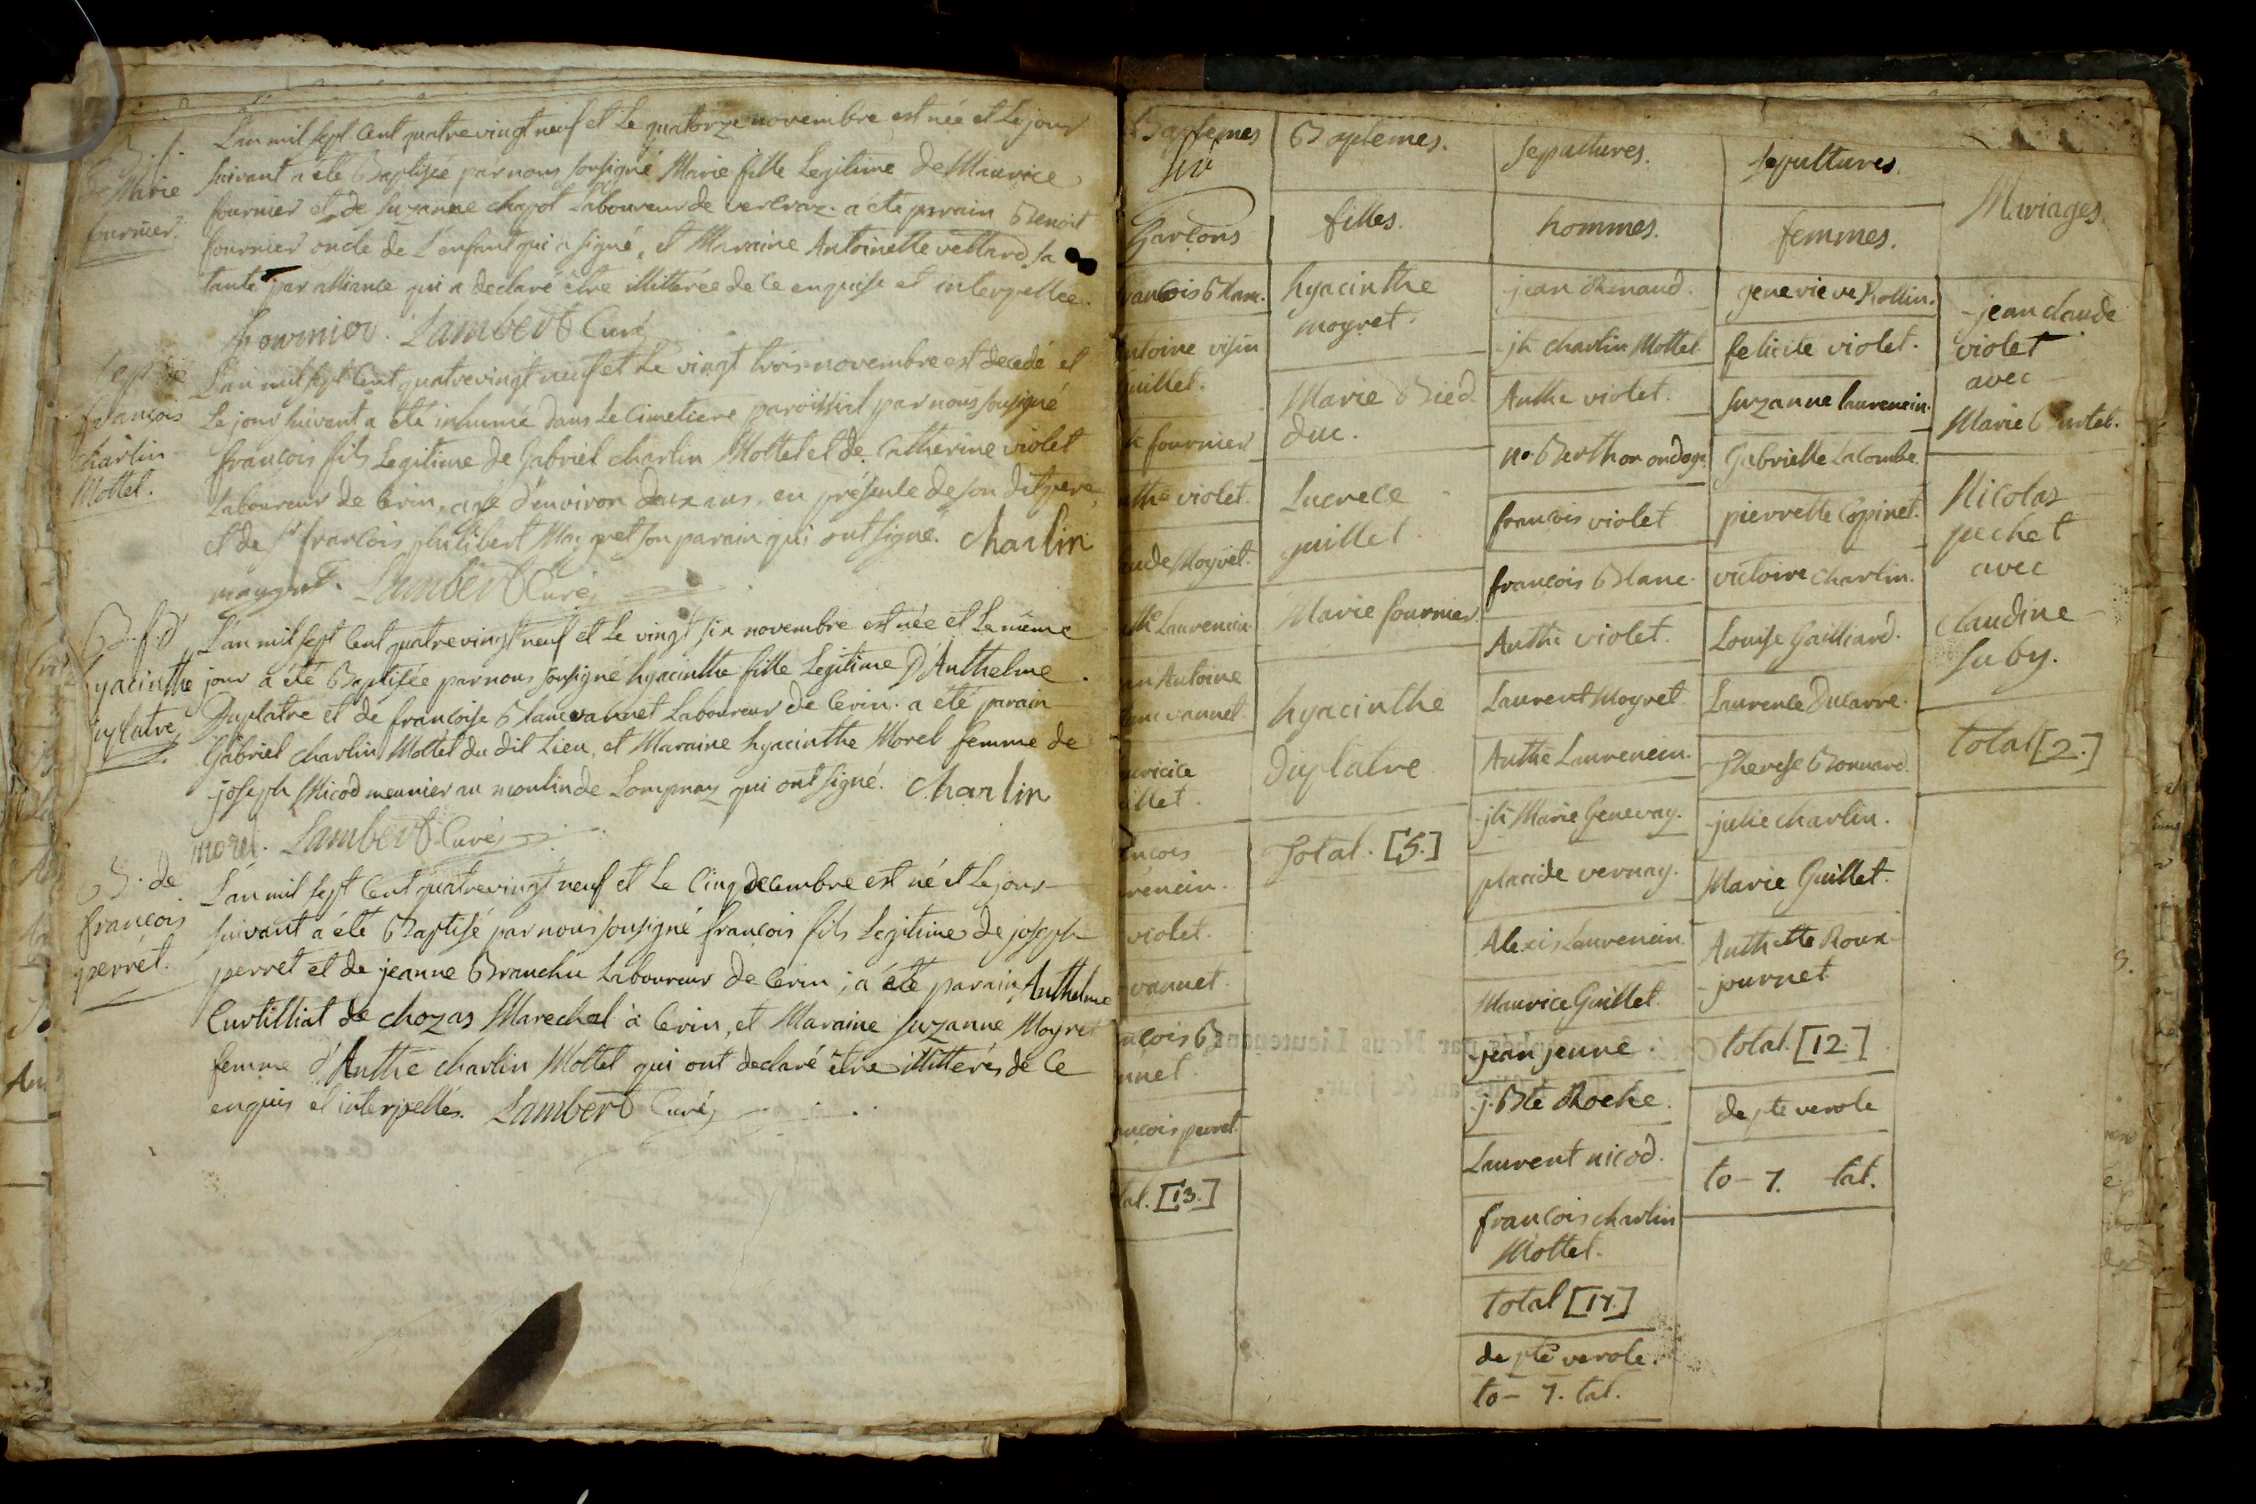 B. f.
de Marie
fournier.
L'an mil sept Cent quatrevingt neuf et Le quatorze novembre est née et Le jour
suivant a été Baptisée par nous soussigné Marie fille Legitime de Maurice
fournier et de Suzanne chapot Laboureur de vercraz. a été parain Benoit
fournier oncle de L'enfant qui a signé, et Maraine Antoinette vettard sa
tante par alliance qui a declaré être illitérée de ce enquise et interpellée.
fournier. Lambert Curé
françois
charlin
Mottet.
L'an mil sept Cent quatrevingt neuf et Le vingt trois novembre est decedé et
Le jour suivant a été inhumé dans Le Cimetiere paroissial par nous soussigné
françois fils Legitime de Gabriel charlin Mottet et de Catherine violet
Laboureur de Cerin, agé d'environ deux ans, en présence de son dit pere
et de Sr françois philibert Moygret son parain qui ont signé. Charlin
Lambert Curé
B. f. d'
hyacinthe
Duplatre
L'an mil sept Cent quatrevingt neuf et Le vingt six novembre est née et Le même
jour a été Baptisée par nous soussigné hyacinthe fille Legitime D'Anthelme
Duplatre et de françoise Blancvannet Laboureur de Cerin. a été parain
Gabriel charlin Mottet du dit Lieu, et Maraine hyacinthe Morel femme de
joseph Nicod meunier au moulin de Lompnaz qui ont signé. Charlin
morel. Lambert Curé
B. de
françois
perret.
L'an mil sept Cent quatrevingt neuf et Le Cinq decembre est né et Le jour
suivant a été Baptisé par nous soussigné françois fils Legitime de joseph
perret et de jeanne Branchu Laboureur de Cerin; a été parain Anthelme
Curtilliat de chozas Marechal à Cerin, et Maraine Suzanne Moyret
femme d'Anthe charlin Mottet qui ont declaré être illittérés de Ce
enquis et interpellés. Lambert Curé
Baptemes
Garçons
françois Blanc.
antoine
guillet.
fournier
anthe violet.
Claude Moyret.
Laurencin
Antoine
Blancvannet
violet.
vannet.
françois B
françois perret.
total. [13.]
Baptemes.
filles.
hyacinthe
moyret.
Marie Bied
duc.
Lucrece
guillet.
Marie fournier
hyacinthe
Duplatre
Total. [5.]
sepultures.
hommes.
jean
jh charlin Mottet
Anthe violet.
no. Berthon ondoyé
françois violet
françois Blanc.
Anthe violet.
Laurent Moyret.
Anthe Laurencin.
jh Marie Genevay.
placide vernay.
Alexis Laurencin.
Maurice Guillet.
jean jenne.
j. Bte Roche.
Laurent nicod.
françois charlin
Mottet.
total [17.]
de pte verole.
to- 7. tal.
sepultures.
femmes.
genevieve Rollin.
felicité violet.
suzanne laurencin.
Gabrielle Lacombe.
pierrette Copinet.
victoire charlin.
Louise Gailliard.
Laurence Ducarre.
Therese Bonnard.
julie charlin.
Marie Guillet.
Anthette Roux
journet.
total. [12.]
de pte verole
to- 7. tal.
Mariages.
jean claude
violet
avec
Marie
Nicolas
pechet
avec
claudine
Suby.
total [2.]